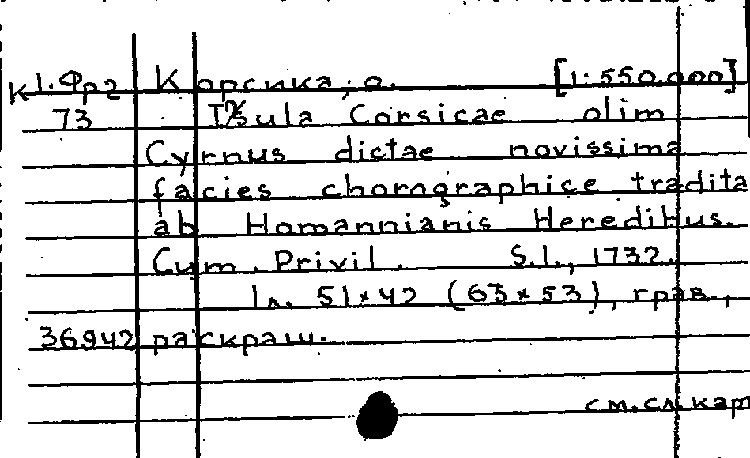 К 1.Фр2 Корсика, о. [1:550.000]
73 Insula Corsicae olim
Cyrnus dictae novissima
facies chorographice tradita
ab Homannianis Heredibus.
Cum. Privil. S.l., 1732.
1л. 51×42 (63×53), грав.,
36942 раскраш.
см.сл.карт